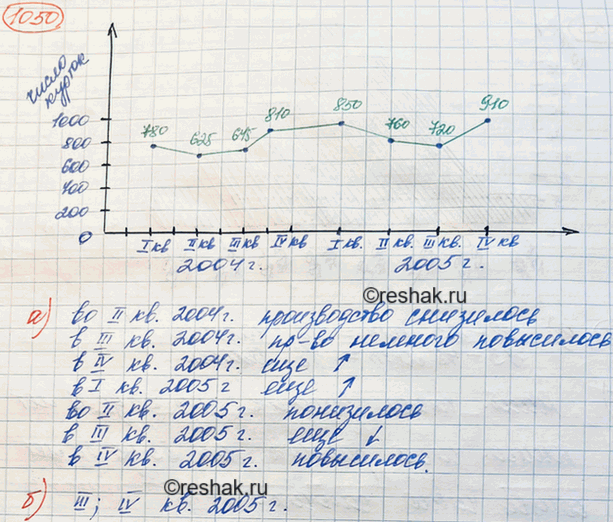 1050
число курток
1000
800
600
400
200
0
780 625 645 810 850 760 720 910
I кв II кв III кв IV кв I кв. II кв. III кв. IV кв
2004г. 2005г.
©reshak.ru
а) во II кв. 2004г. производство снизилось
в III кв. 2004г. пр-во немного повысилось
в IV кв. 2004г. еще ↑
в I кв. 2005г еще ↑
во II кв. 2005г. понизилось
в III кв. 2005г. еще ↓
в IV кв. 2005г. повысилось.
©reshak.ru
б) III; IV кв. 2005г.